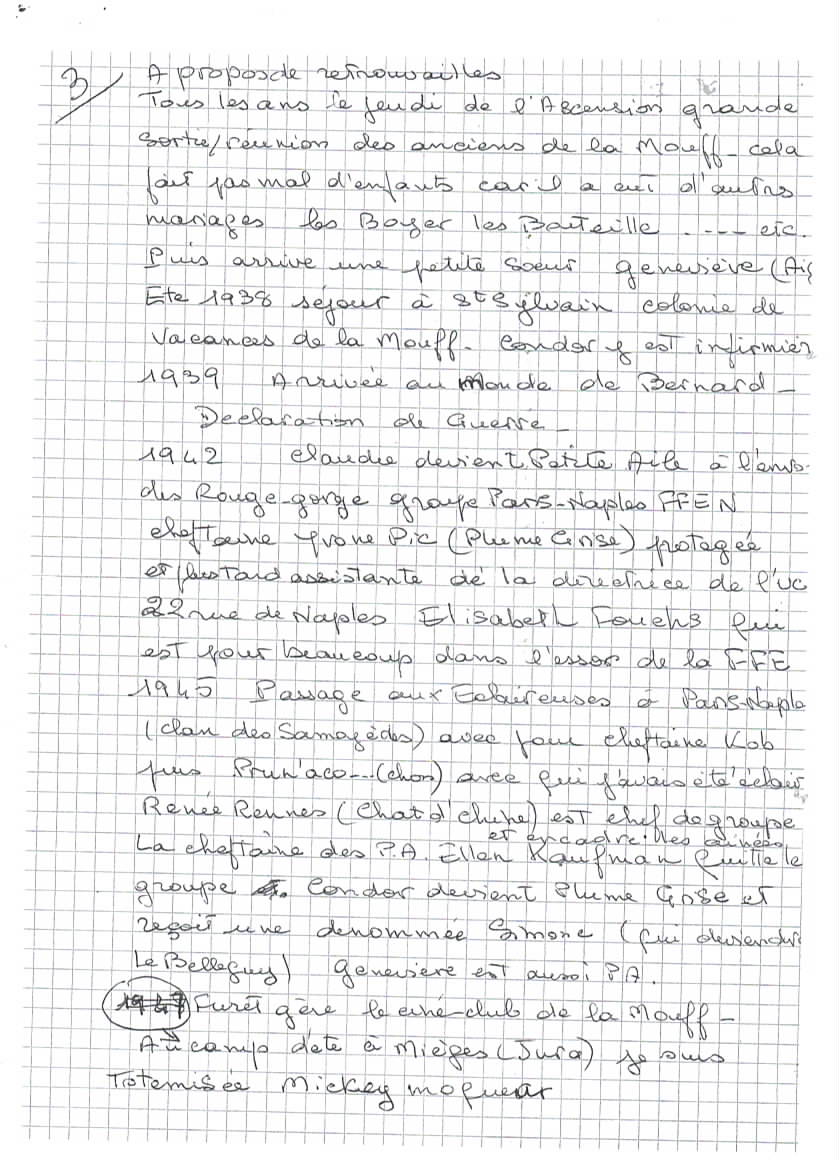 3/ A propos de retrouvailles
Tous les ans le jeudi de l'Ascension grande
sortie/réunion des anciens de la Mouff - cela
fait pas mal d'enfants car il a eut d'autres
mariages les Boyer les Bateille .---- etc.
Puis arrive une petite soeur geneviève (Aig
Ete 1938 séjour à St Sylvain colonie de
Vacances de la Mouff. Condor y est infirmièr
1939 Arrivée au Monde de Bernard -
Declaration de Guerre -
1942 Claudie devient Petite Aile à l'env.
des Rouge-gorge groupe Paris-Naples FFEN
cheftaine Yvone Pic (Plume Grise) protegée
et plus tard assistante de la directrice de l'UC
22 rue de Naples Elisabeth Fouchs qui
est pour beaucoup dans l'essor de la FFE
1945 Passage aux Eclaireuses à Paris-Naple
(clan des Samoyèdes) avec pour cheftaine Kob
puis Prun'aco...(chon) avec qui j'avais été éclair
Renée Rennes (Chat d'chine) est chef de groupe
et encadre les ainées
La cheftaine des P.A. Ellen Kaufman quitte le
groupe Condor devient Plume Grise et
reçoit une denommée Simone (qui deviendra
Le Belleguy) genevieve est aussi P.A.
1947 Furêt gère le ciné-club de la Mouff -
Au camp d'été à Mièges (Jura) je suis
Totemisée Mickey moqueur